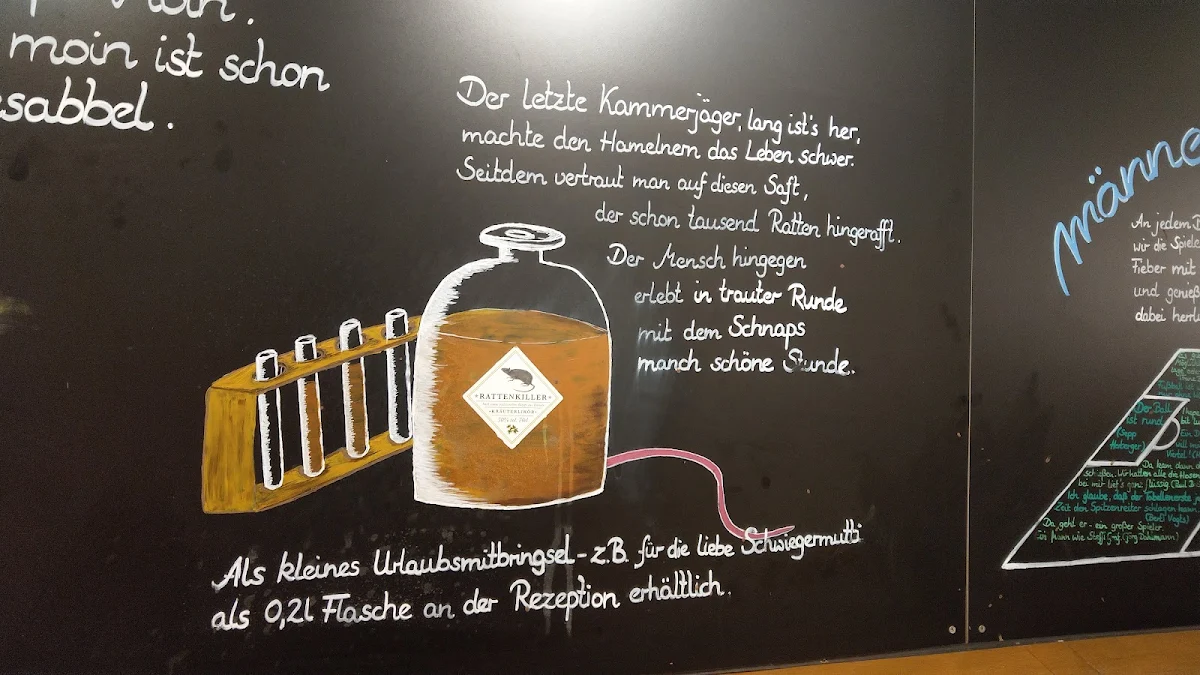 moin ist schon
sabbel.
Der letzte Kammerjäger, lang ist's her,
machte den Hamelnern das Leben schwer.
Seitdem vertraut man auf diesen Saft,
der schon tausend Ratten hingerafft.
Der Mensch hingegen
erlebt in trauter Runde
mit dem Schnaps
manch schöne Stunde.
RATTENKILLER
KRÄUTERLIKÖR
Als kleines Urlaubsmitbringsel - z.B. für die liebe Schwiegermutti
als 0,2l Flasche an der Rezeption erhältlich.
männe
An jedem
wir die Spiele
Fieber mit
und genieß
dabei herrli
Der Ball
ist rund
(Sepp
Herberger)
Ich glaube, daß der Tabellenerste
Zeit den Spitzenreiter schlagen kann
(Berti Vogts)
Da geht er - ein großer Spieler.
Ein Mann wie Steffi Graf. (Jörg Dahlmann)